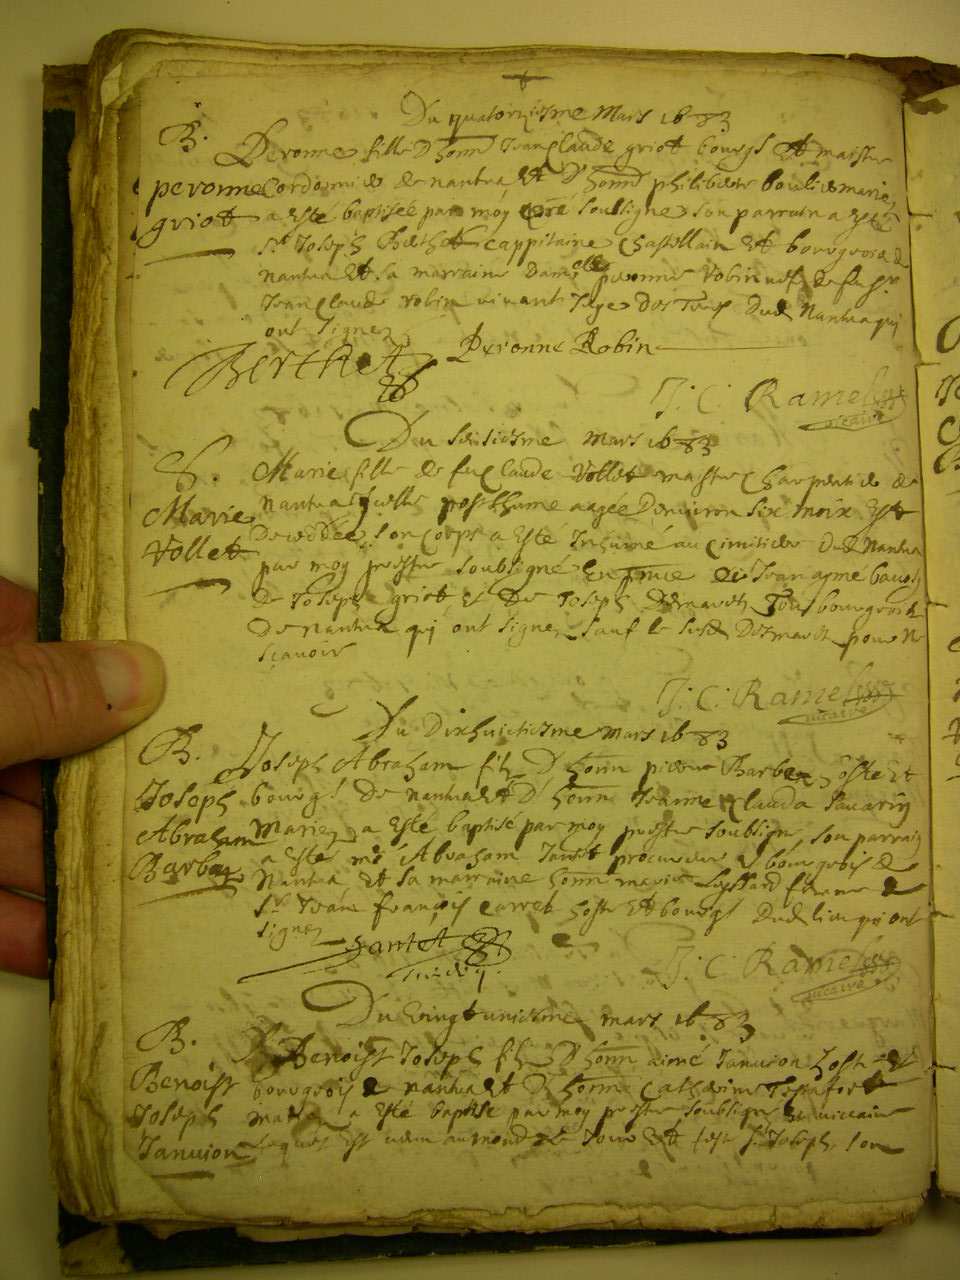 Du quatorziesme Mars 1683
B.
Peronne fille D'honn Jean Claude griot bourg! Et maistre
peronne
griot
Cordonnier de nantua Et D'honn philiberte boulier mariez
a Esté baptisée par moy curé soubsigne son parrain a esté
Sr Joseph Berthet cappitaine Chastellain Et bourgeois de
nantua Et sa marraine Damlle peronne Robin vefve de feu Sr
Jean Claude robin vivant Juge des Terres Dud Nantua qui
ont signez
Berthet
Peronne Robin
J. C. Ramel
vicaire
Du seiziesme mars 1683
S.
Marie
Vollet
Marie fille de fu Claude Vollet maistre Charpentier de
nantua icelle posthume aagée D'environ six moix Est
Decedée son Corps a Esté Inhumé au Cimitiere Dud Nantua
par moy prestre soubsigné En pnce de Jean aymé
de Joseph griot et De Joseph Dermauet Tous bourgeois
De nantua qui ont signez sauf le susd pour ne
sçavoir
J. C. Ramel
vicaire
Du Dixhuictiesme mars 1683
B.
Joseph
Abraham
Barbey
Joseph Abraham filz D'honn pierre Barbey hoste Et
bourg! De nantua Et D'honn Jeanne Clauda Savarin
Mariez a Esté baptisé par moy prestre soubsigne, son parrain
a Esté me Abraham Jantet procureur Et bourgeois de
Nantua Et sa marraine honn marie femme de
Sr Jean françois carret hoste Et bourg! Dud lieu qui ont
signez
Jantet
J. C. Ramel
vicaire
Du Vingt uniesme mars 1683
B.
Benoist
Joseph
Janvion
Benoist Joseph filz D'honn aimé Janvion hoste Et
bourgeois de nantua Et D'honne Catherine
mariez a Esté baptisé par moy prestre soubsigne vicaire
Lequel Est venu au monde le Jour Et feste St Joseph, son